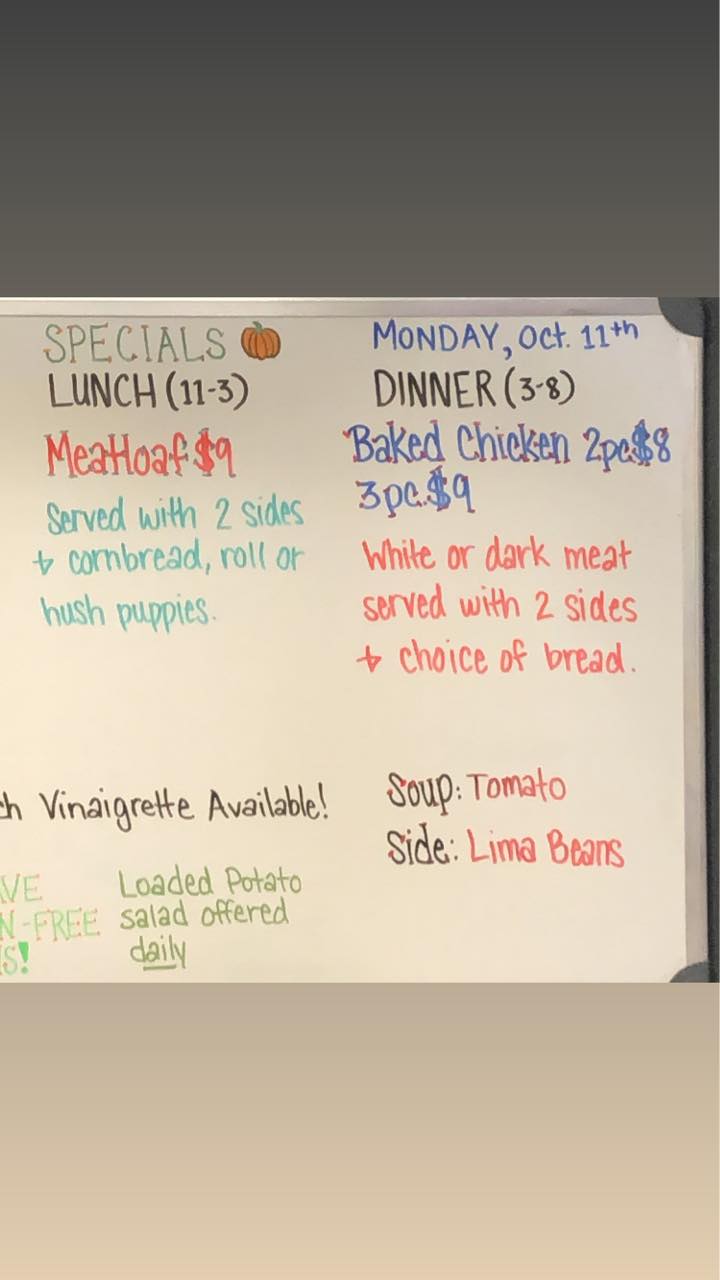 SPECIALS
LUNCH (11-3)
Meatloaf $9
Served with 2 sides
+ cornbread, roll or
hush puppies.
MONDAY, Oct. 11th
DINNER (3-8)
Baked Chicken 2pc.$8
3pc.$9
White or dark meat
served with 2 sides
+ choice of bread.
Vinaigrette Available!
Soup: Tomato
Side: Lima Beans
-FREE
Loaded Potato
salad offered
daily